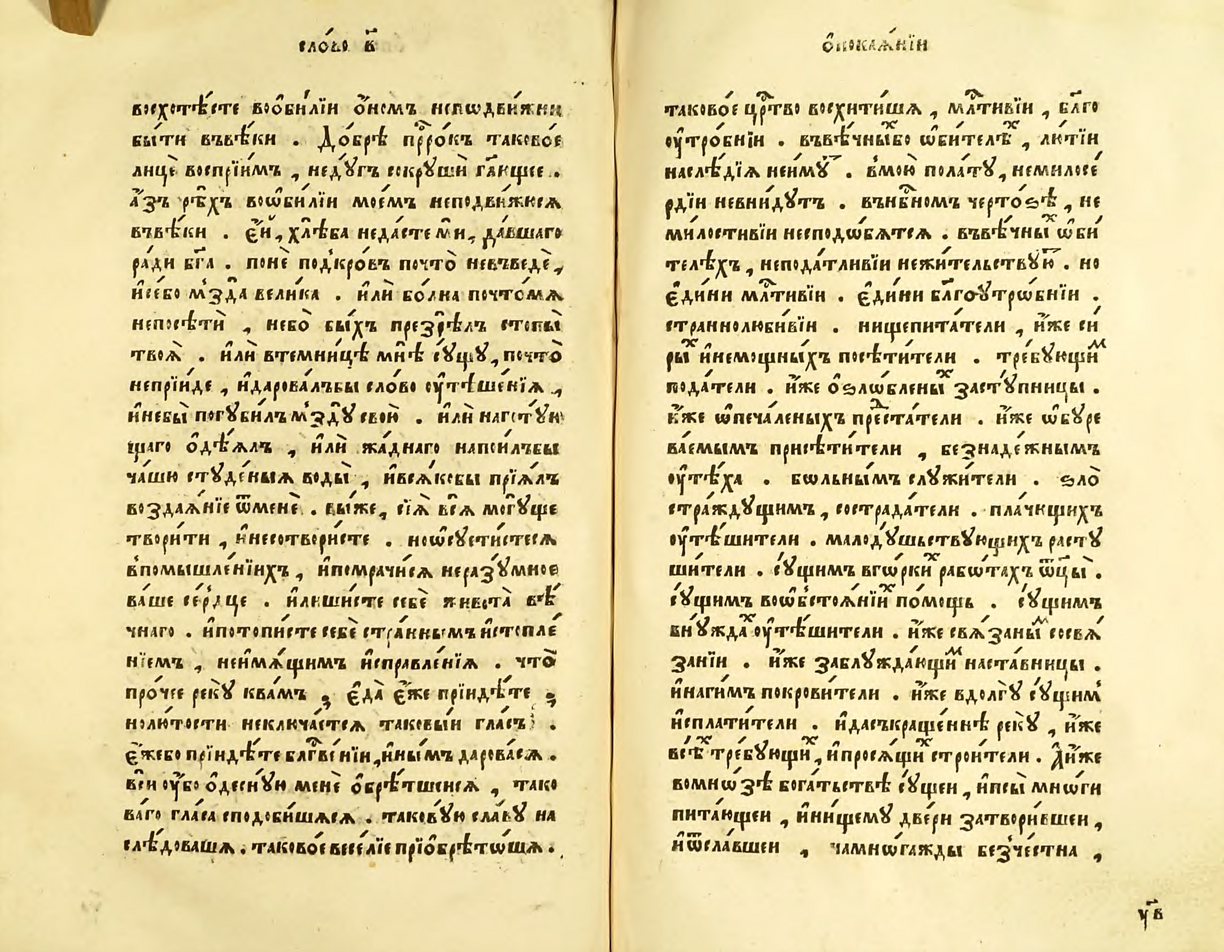 сло́во в҃
восхотѣ́сте воѡби́лїи ѻ҆́номъ непѡдви́жни
бы́ти въвѣ́ки . До́брѣ прⷪ҇ро́къ тако́вое
лицѐ воспрїи́мъ , неду́гъ сокрушѝ гл҃ющее .
а҆́зъ рѣ́хъ воѡби́лїи мое́мъ неподви́жюся
въвѣ́ки . є҆́й , хлѣ́ба неда́сте мѝ , да́вшаго
ра́ди бг҃а . понѐ подкро́въ почто̀ невъведѐ ,
и҆себо мзⷣа̀ вели́ка . и҆лѝ бо́лна почто́мѧ
непосѣтѝ , небо̀ бы́хъ презрѣ́лъ стопы̀
твоѧ̀ . и҆лѝ втемни́цѣ мнѣ̀ сꙋ́щꙋ , почто̀
непрїи́де , и҆дарова́лъбы сло́во ᲂу҆тѣше́нїѧ ,
и҆небы̀ погꙋби́лъ мздꙋ̀ свою̀ . и҆лѝ нагс̑тꙋю
щаго ѻ҆дѣ́ѧлъ , и҆лѝ жа́днаго напои́лъбы
ча́шю стꙋде́ныѧ воды̀ , и҆всѧ́кобы прїѧ́лъ
воздаѧ́нїе ѿменѐ . вы́же , сїѧ̀ всѧ̀ могꙋ́ще
твори́ти , и҆несотвори́сте .ноѡсꙋети́стесѧ
впомышле́нїихъ , и҆помрачи́сѧ неразꙋ́мное
ва́ше се́рдце . и҆лиши́сте себѐ живота̀ вѣ́
чнаго . и҆потопи́сте себѐ стра́ннымъ и҆стопле́
нїемъ , неимꙋ́щимъ и҆справле́нїѧ . что̀
про́чее рекꙋ̀ квамъ ; є҆да̀ є҆́же прїиди́те ;
нолю́тости неключа́етсѧ тако́выи гла́съ .
є҆́жебо прїиди́те блгⷭ҇ве́нїи , и҆ны́мъ дарова́сѧ .
вси ᲂу҆́бо ѻ҆деснꙋ́ю менѐ ѻ҆брѣ́тшеисѧ , тако
ва́го гла́са сподо́бишасѧ . такову́ю сла́вꙋ на
слѣ́довашѧ . тако́вое весе́лїе прїѻбрѣто́шѧ .
ѻ҆покаѧ́нїи
тако́вое црⷭ҇тво восхи́тишѧ , млⷭ҇тивїи , бл҃го
ᲂу҆тро́бнїи . въвѣ́чныⷯбо ѡ҆би́телѣⷯ , лю́тїи
наслѣ́дїѧ неи́мꙋⷮ . вмою̀ пола́тꙋ , немилосе́
рдїи невни́дꙋтъ . вънбⷭ҇номъ черто́ѕѣ , не
ми́лостивїи несподо́бѧтсѧ . въвѣ́чныⷯ ѡ҆би
телѣ́хъ , непода́тливїи нежи́тельствꙋюⷮ . но
є҆ди́ни млⷭ҇тивїи . є҆ди́ни бл҃гоꙋтро́бнїи .
страннолюби́вїи . нищепита́тели , и҆́же си
ры́ⷯ и҆немощны́хъ посѣти́тели . тре́бꙋющиⷨ
пода́тели . и҆́же ѻ҆ѕло́бленыⷯ засту́пницы .
и҆́же ѡ҆печа́леныхъ преⷣста́тели . и҆́же ѡ҆бꙋре
ва́емымъ присѣти́тели , безнаде́жнымъ
ᲂу҆тѣ́ха . бѡльны́мъ слꙋжи́тели . ѕло̀
стра́ждꙋщимъ , сострада́тели . пла́чющихъ
ᲂу҆тѣши́тели . малодꙋ́шьствꙋющихъ расту
ши́тели . сꙋ́щимъ вго́ркиⷯ рабо́тахъ ѿцы̀ .
сꙋ́щимъ воѡбстоѧ́нїи по́мощь . сꙋ́щимъ
внꙋ́ждаⷯ ᲂу҆тѣши́тели . и҆́же свѧ́заныⷨ сосвѧ́
занїи . и҆́же заблꙋжда́ющиⷨ наста́вницы .
и҆наги́мъ покрови́тели . и҆́же вдо́лгꙋ сꙋ́щимъ
и҆спла́тители . и҆дасъкраще́ннѣ рекꙋ̀ , и҆́же
всѣⷯ тре́бꙋющиⷯ , и҆просѧ́щиⷯ строи́тели . А҆и҆́же
вомно́зѣ бога́тьствѣ сꙋ́щеи , и҆псы̀ мно́ги
пита́ющеи , и҆ни́щемꙋ две́ри затвори́вшеи ,
и҆ѿсла́вшеи , чамно́гажды безче́стна ,
ув҃